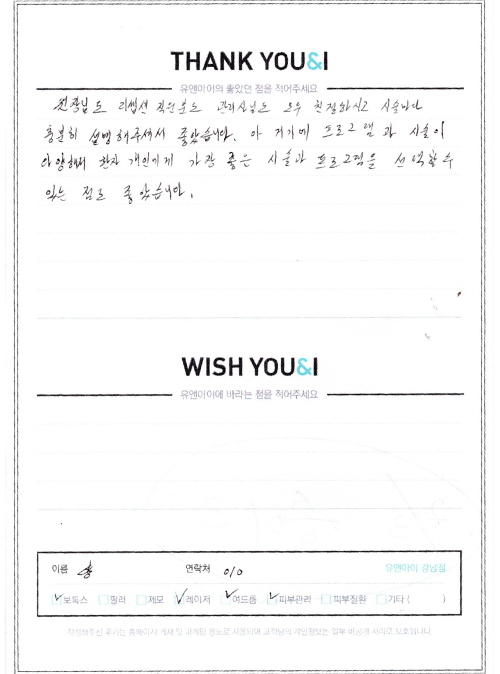 THANK YOU&I
유앤아이의 좋았던 점을 적어주세요
원장님도 리셉션 직원분도 관리사님도 모두 친절하시고 시술마다
충분히 설명해주셔서 좋았습니다. 아 거기에 프로그램과 시술이
다양해서 환자 개인에게 가장 좋은 시술과 프로그램을 선택할 수
있는 점도 좋았습니다.
WISH YOU&I
유앤아이에 바라는 점을 적어주세요
이름 홍 연락처 010 유앤아이 강남점
보톡스 필러 제모 레이저 여드름 피부관리 피부질환 기타 ( )
작성해주신 후기는 홈페이지 게재 및 마케팅 용도로 사용되며 고객님의 개인정보는 일부 비공개 처리로 보호됩니다.